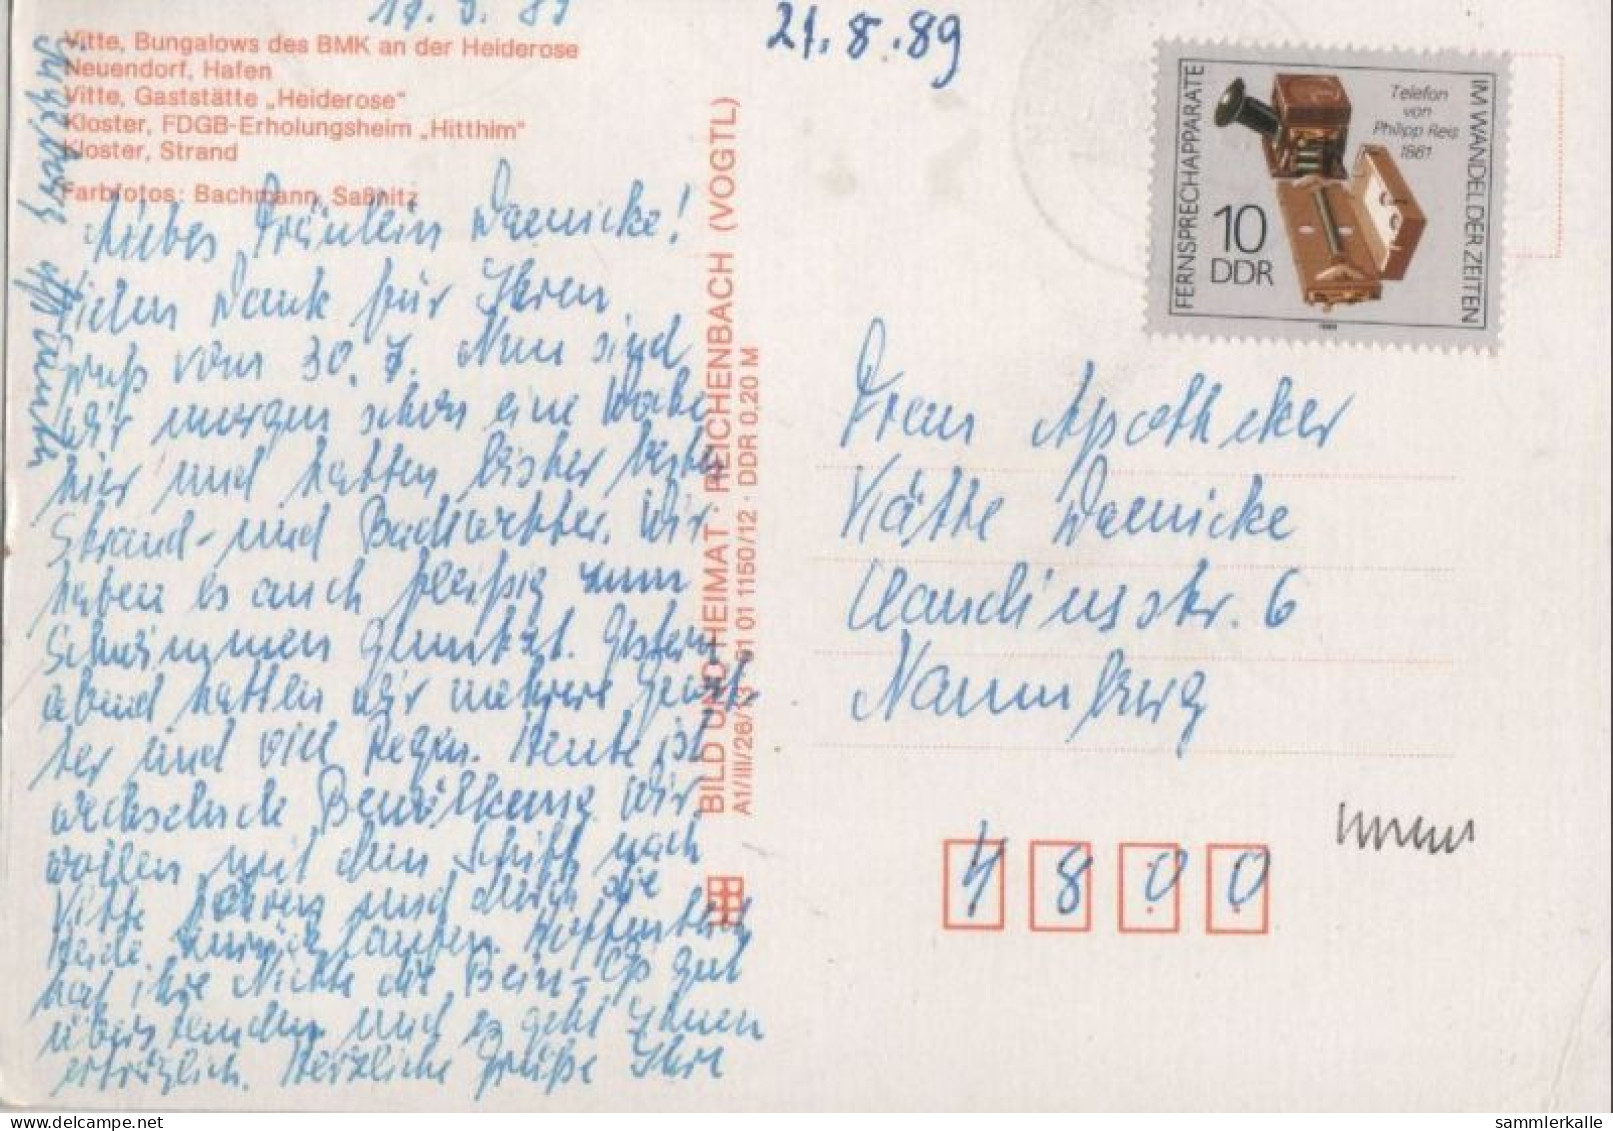 21.8.89
Vitte, Bungalows des BMK an der Heiderose
Neuendorf, Hafen
Vitte, Gaststätte „Heiderose"
Kloster, FDGB-Erholungsheim „Hitthim"
Kloster, Strand
Farbfotos: Bachmann, Saßnitz
Liebes Fräulein Daenicke!
Vielen Dank für Ihren
Gruß vom 30.7. Nun sind
wir morgen schon eine Woche
hier und hatten bisher bestes
Strand- und Badewetter. Wir
haben es auch fleißig zum
Schwimmen genutzt. Gestern
abend hatten wir mehrere Gewit-
ter und viel Regen. Heute ist
wechselnde Bewölkung. Wir
wollen mit dem Schiff nach
Vitte fahren und durch die
Heide zurück laufen. Hoffentlich
hat ihre Nichte die Bein-Op gut
überstanden und es geht Ihnen
erträglich. Herzliche Grüße Ihre
BILD UND HEIMAT · REICHENBACH (VOGTL)
A1/III/26/13 01 01 1150/12 · DDR 0,20 M
FERNSPRECHAPPARATE
IM WANDEL DER ZEITEN
Telefon
von
Philipp Reis
1861
10
DDR
Frau Apotheker
Käthe Daenicke
Claudiusstr. 6
Naumburg
4800
sammlerkalle.com